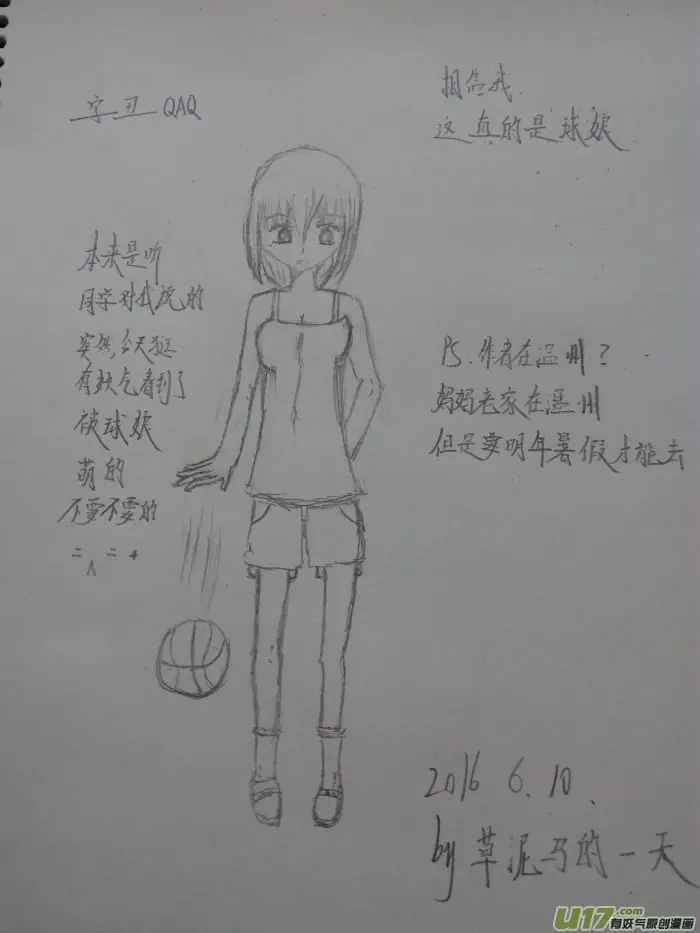 字丑 QAQ
相信我
这真的是球娘
本来是听
同学对我说的
突然,今天逛
有妖气看到了
被球娘
萌的
不要不要的
PS.作者在温州?
妈妈老家在温州
但是要明年暑假才能去
2016 6.10.
by 草泥马的一天
U17.com
有妖气原创漫画